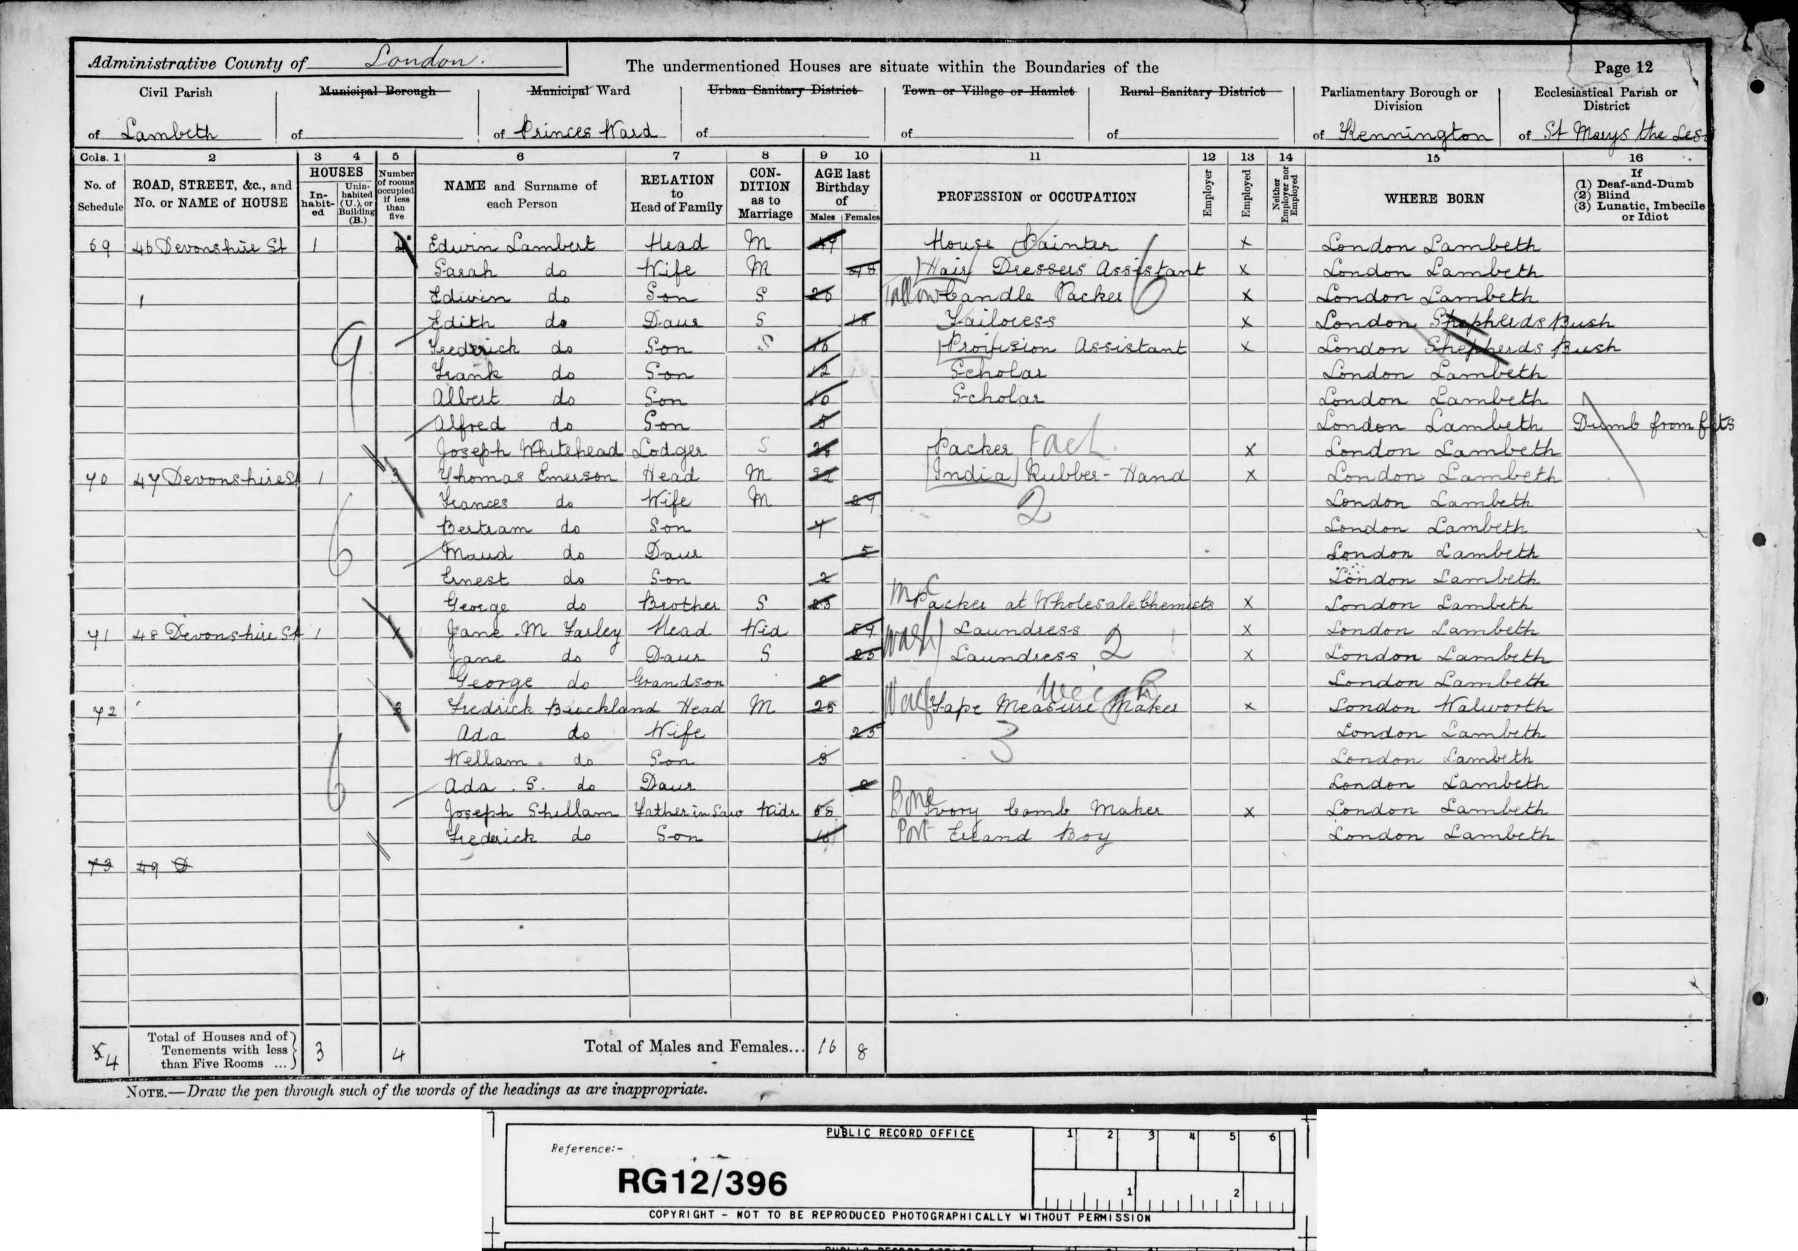 Administrative County of London. The undermentioned Houses are situate within the Boundaries of the Page 12
Civil Parish Municipal Borough Municipal Ward Urban Sanitary District Town or Village or Hamlet Rural Sanitary District Parliamentary Borough or Division Ecclesiastical Parish or District
of Lambeth of of Princes Ward of of of of Kennington of St Marys the Less
Cols. 1 2 3 4 5 6 7 8 9 10 11 12 13 14 15 16
No. of Schedule ROAD, STREET, &c., and No. or NAME of HOUSE HOUSES In-habit-ed Unin-habited (U.), or Building (B.) Number of rooms occupied if less than five NAME and Surname of each Person RELATION to Head of Family CON-DITION as to Marriage AGE last Birthday of Males Females PROFESSION or OCCUPATION Employer Employed Neither Employer nor Employed WHERE BORN If (1) Deaf-and-Dumb (2) Blind (3) Lunatic, Imbecile or Idiot
69 46 Devonshire St 1 4 Edwin Lambert Head M 49 House Painter x London Lambeth
Sarah do Wife M 48 Hair Dressers Assistant x London Lambeth
1 Edwin do Son S Tallow Candle Packer x London Lambeth
Edith do Daur S 18 Tailoress x London Shepherds Bush
9 Frederick do Son S 16 Provision Assistant x London Shepherds Bush
Frank do Son 12 Scholar London Lambeth
Albert do Son 10 Scholar London Lambeth
Alfred do Son London Lambeth Dumb from fits
Joseph Whitehead Lodger S Packer Fact. x London Lambeth
70 47 Devonshire St 1 3 Thomas Emerson Head M India Rubber-Hand x London Lambeth
Frances do Wife M 29 2 London Lambeth
6 Bertram do Son London Lambeth
Maud do Daur 5 London Lambeth
Ernest do Son 2 London Lambeth
George do Brother S Packer at Wholesale Chemists x London Lambeth
71 48 Devonshire St 1 Jane M Farley Head Wid 59 Wash Laundress x London Lambeth
Jane do Daur S Laundress 2 x London Lambeth
George do Grandson London Lambeth
72 3 Fredrick Buckland Head M 25 Tape Measure Maker x London Walworth
Ada do Wife 25 3 London Lambeth
Wellam do Son 3 London Lambeth
6 Ada . S. do Daur London Lambeth
Joseph Shellam Father in Law Widr Bone Ivory Comb Maker x London Lambeth
Frederick do Son Port Errand Boy London Lambeth
73 49 D
4 Total of Houses and of Tenements with less than Five Rooms ... 3 4 Total of Males and Females... 16 8
NOTE.—Draw the pen through such of the words of the headings as are inappropriate.
PUBLIC RECORD OFFICE 1 2 3 4 5 6
Reference:-
RG12/396 1 2
COPYRIGHT - NOT TO BE REPRODUCED PHOTOGRAPHICALLY WITHOUT PERMISSION
PUBLIC RECORD OFFICE